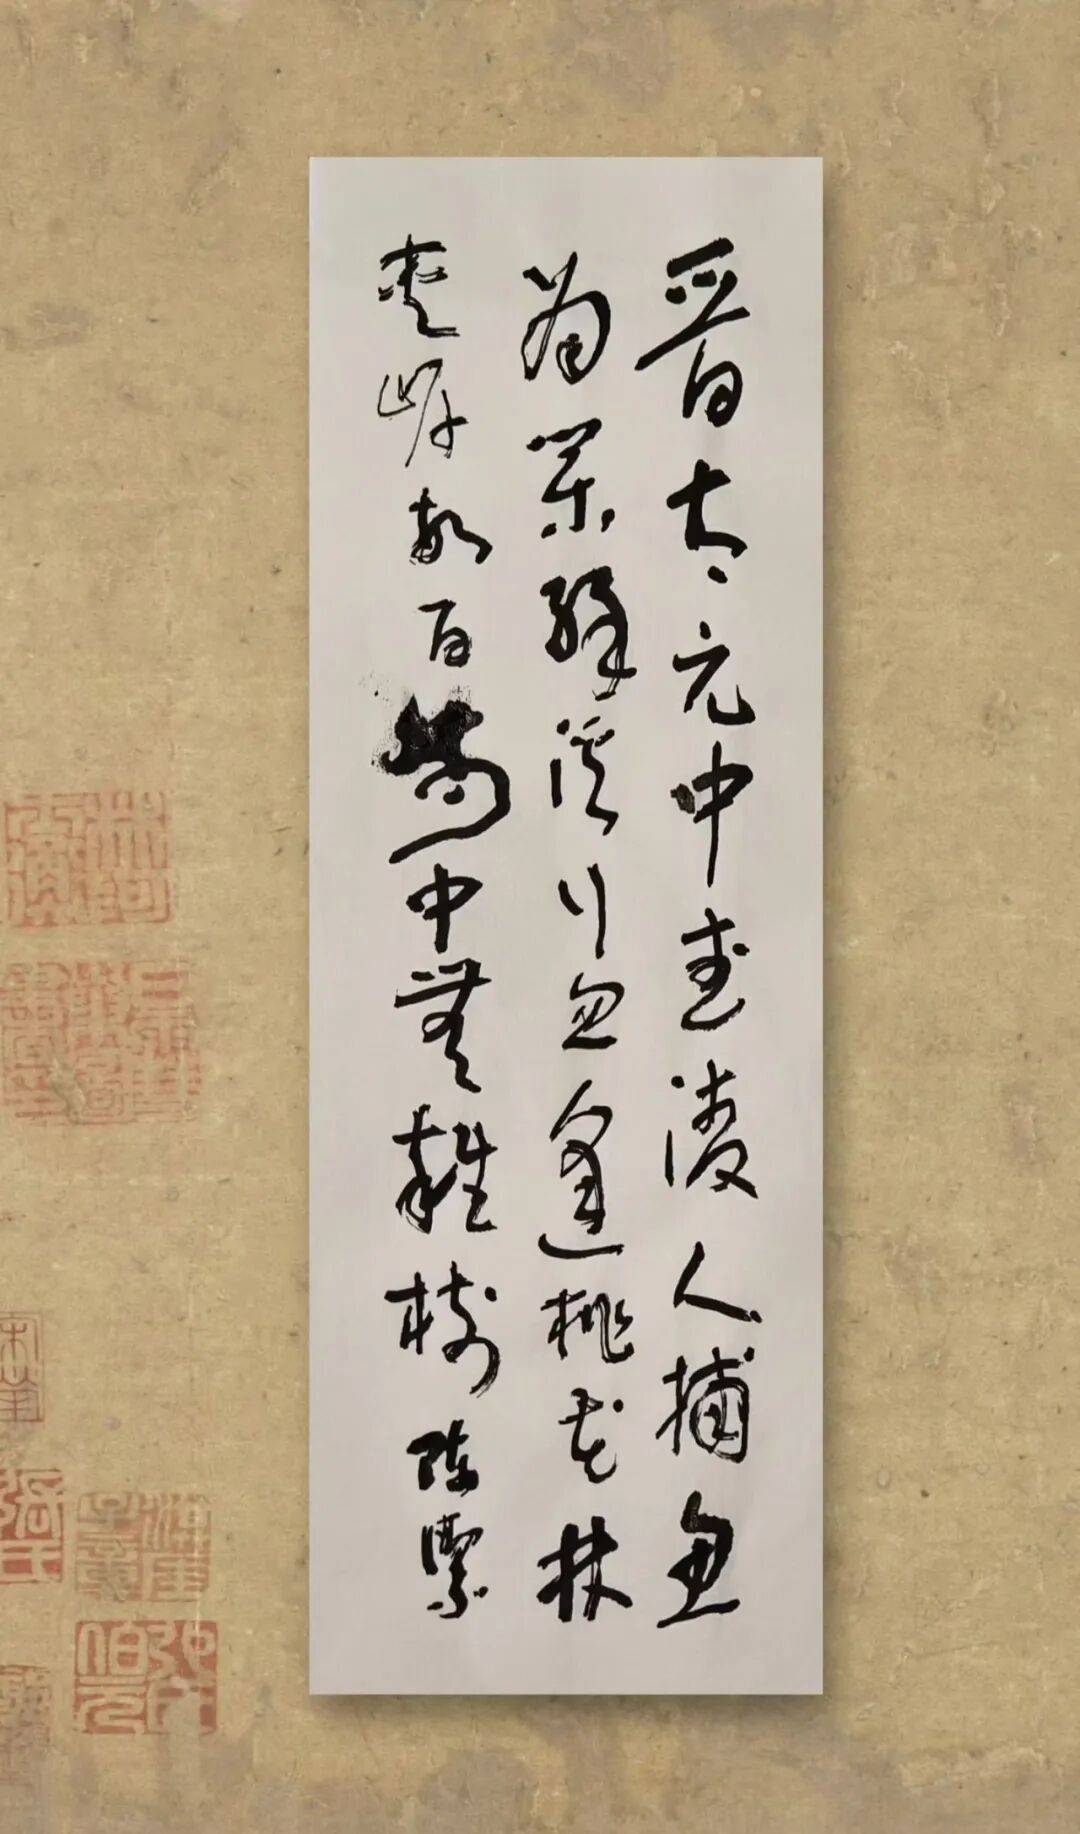 晋太元中武陵人捕鱼
为业缘溪行忽逢桃花林
夹岸数百步中无杂树 陈